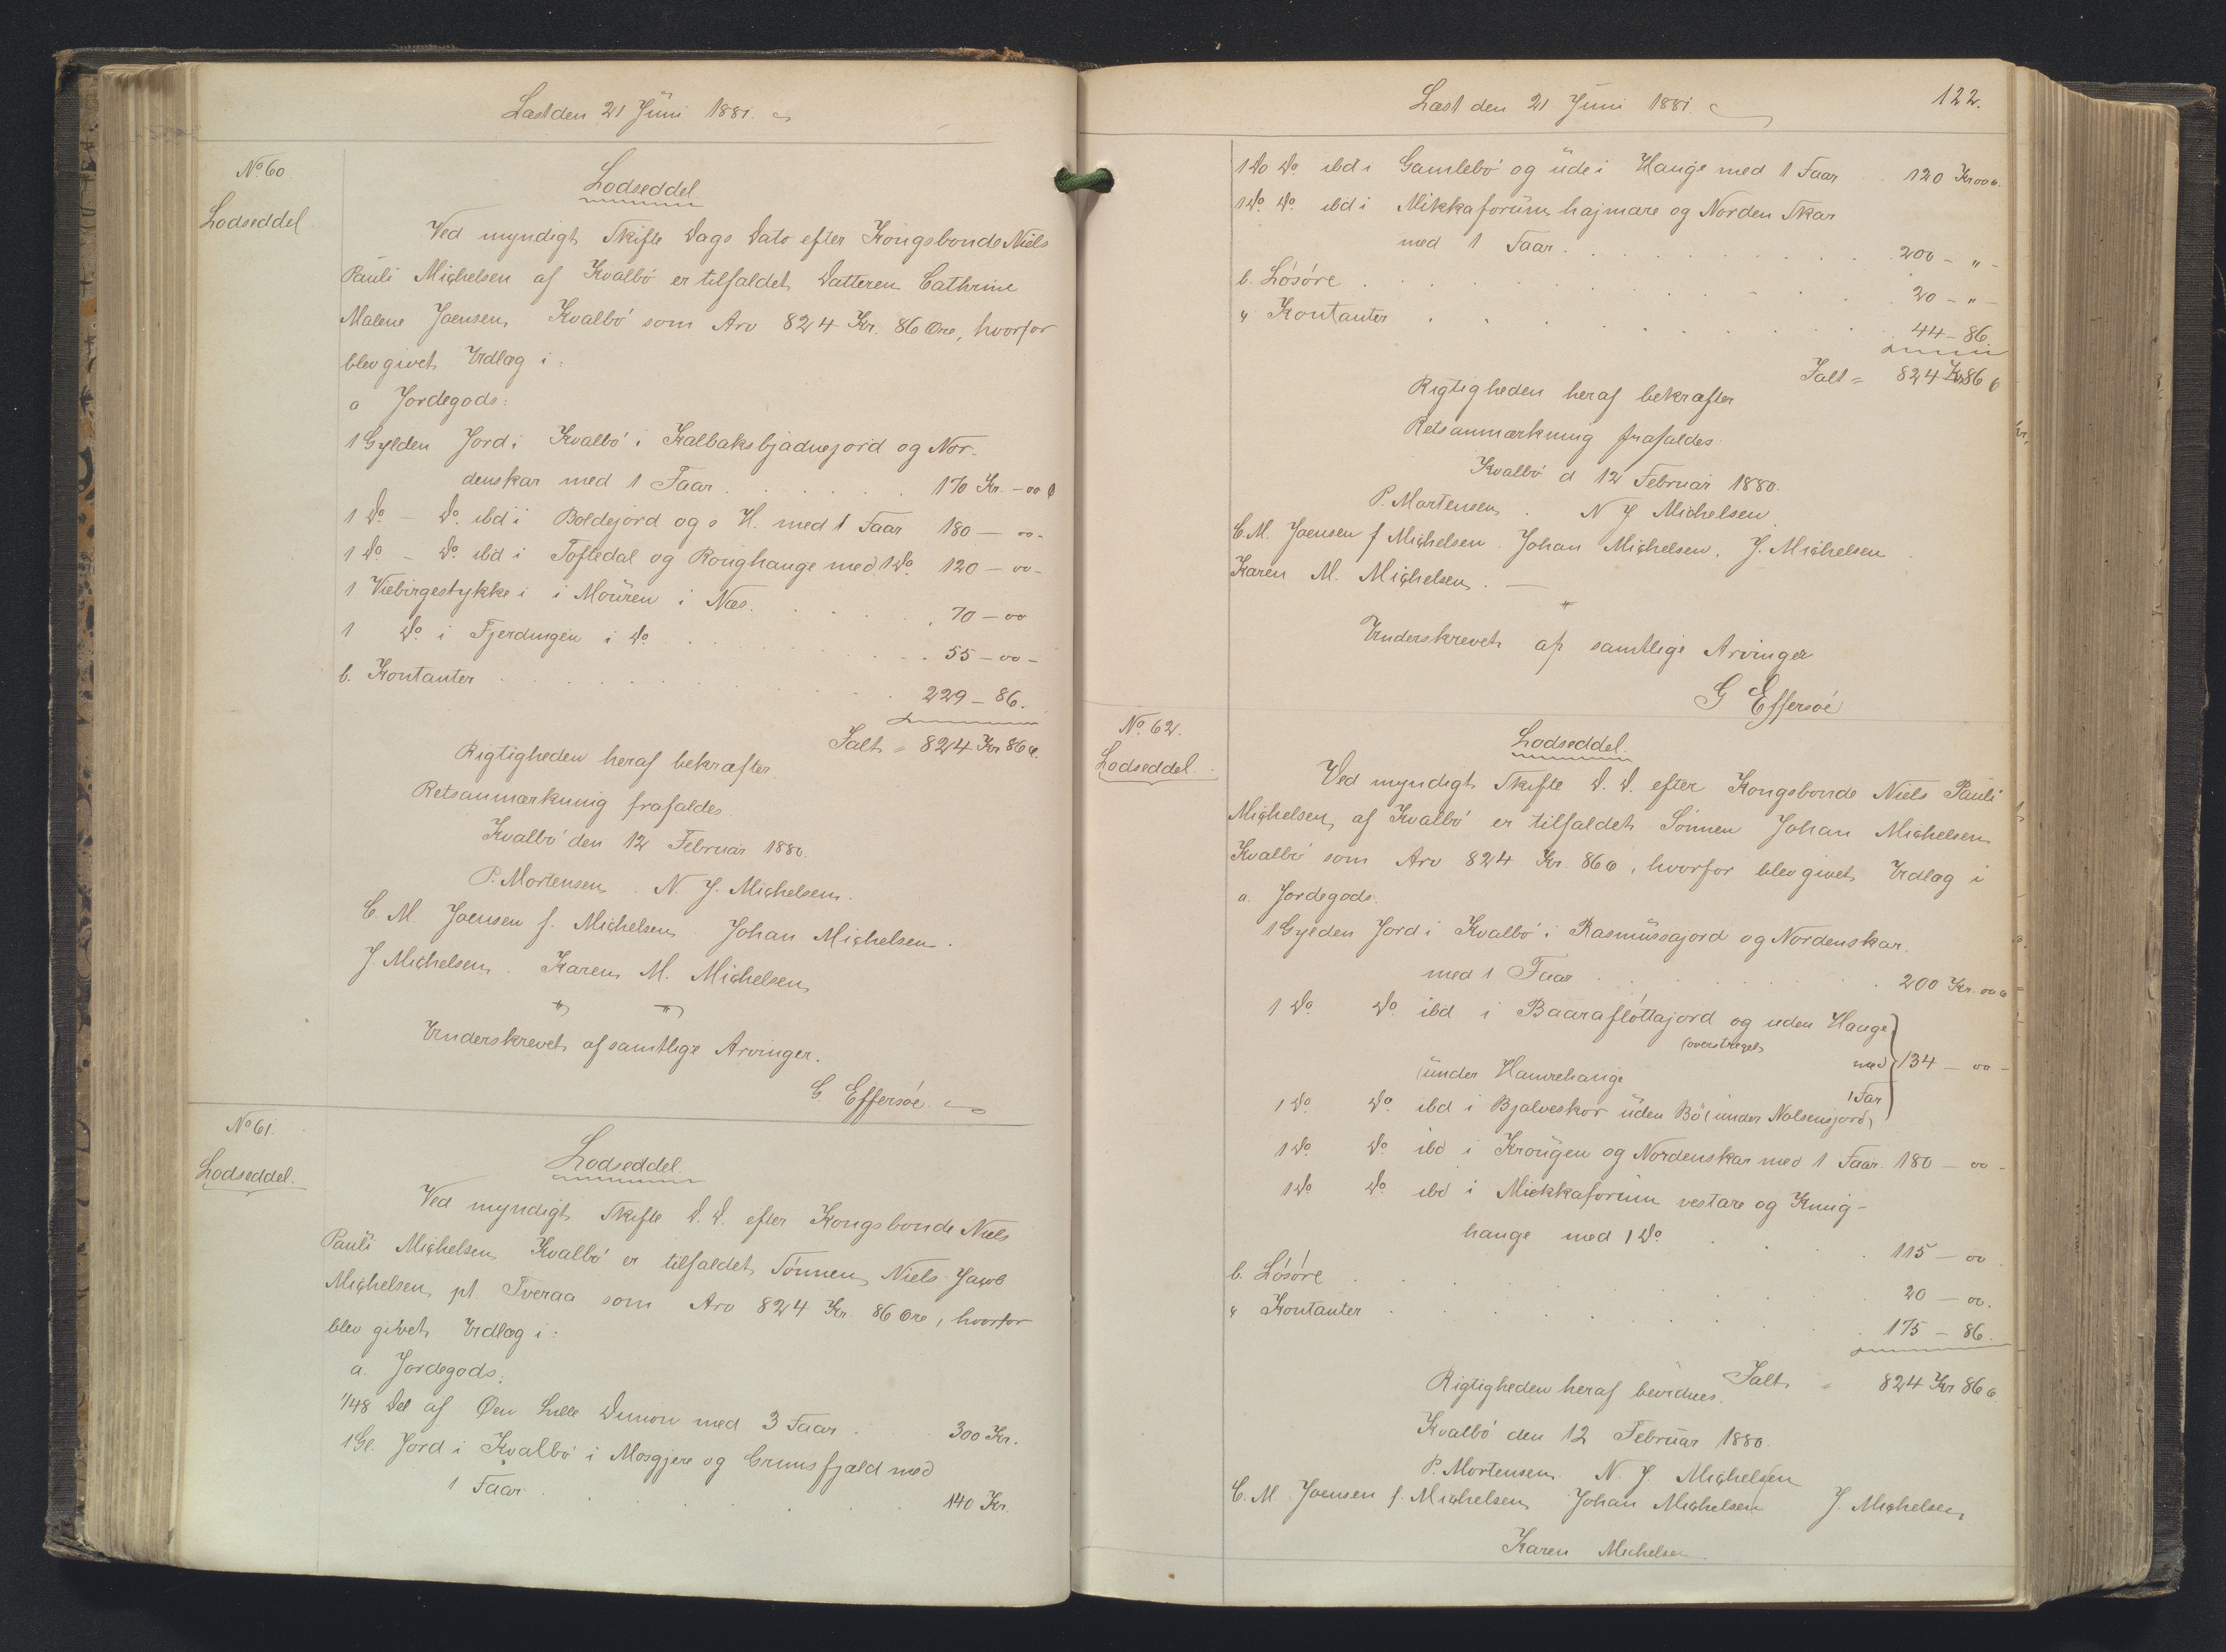 Læst den 21 Juni 1881.
No 60.
Lodseddel.
Lodseddel
Ved myndigt Skifte Dags Dato efter Kongsbonde Niels
Pauli Michelsen af Kvalbø er tilfaldet Datteren Cathrine
Malene Joensen, Kvalbø som Arv 824 Kr. 86 Øre, hvorfor
blev givet Udlæg i:
a Jordegods:
1 Gylden Jord i Kvalbø i Kalbaksbjadnejord og Nor-
denskar med 1 Faar . . . 170 Kr. - oo Ø
1 Do - Do ibd i Boldejord og s H. med 1 Faar 180 - oo -
1 Do - Do ibd i Toftedal og Roughange med 1 Do 120 - oo -
1 Viebirgestykke i i Mouren i Næs . . . 70 - oo
1 Do i Fjerdingen i Do . . . 55 - oo -
b. Kontanter . . . 229 - 86.
Ialt = 824 Kr 86 Ø.
Rigtigheden heraf bekræfter
Retsanmærkning frafaldes
Kvalbø den 12 Februar 1880.
P. Mortensen. N. J. Michelsen.
C. M. Joensen f. Michelsen Johan Michelsen.
J. Michelsen. Karen M. Michelsen
" "
Underskrevet af samtlige Arvinger.
G. Effersøe.
No 61.
Lodseddel.
Lodseddel
Ved myndigt Skifte D. D. efter Kongsbonde Niels
Pauli Michelsen Kvalbø er tilfaldet Sønnen Niels Jacob
Michelsen, pt. Tveraa som Arv 824 Kr 86 Øre, hvorfor
blev givet Udlæg i:
a. Jordegods:
1/48 Del af Øen Lille Dimon med 3 Faar . 300 Kr.
1 Gl. Jord i Kvalbø i Mosgjere og Crunsfjæld med
1 Faar . . . 140 Kr.
Læst den 21 Juni 1881.
122.
1 Do Do ibd i Gamlebø og ude i Hauge med 1 Faar . 120 Kr oo Ø.
1 Do Do ibd i Mikkaforum hajmare og Norden Skar
med 1 Faar . . . 200 - " -
b. Løsøre . . . 20 - " -
" Kontanter . . . 44 - 86.
Ialt = 824 Kr 86 Ø
Rigtigheden heraf bekræfter
Retsanmærkning frafaldes.
Kvalbø d 12 Februar 1880.
P. Mortensen. N J Michelsen.
C. M. Joensen f Michelsen. Johan Michelsen. J. Michelsen.
Karen M. Michelsen. -
"
Underskrevet af samtlige Arvinger
G Effersøe
No 62.
Lodseddel.
Lodseddel.
Ved myndigt Skifte D. D. efter Kongsbonde Niels Pauli
Michelsen, af Kvalbø er tilfaldet Sønnen Johan Michelsen
Kvalbø som Arv 824 Kr. 86 Ø, hvorfor blev givet Udlæg i
a. Jordegods.
1 Gylden Jord i Kvalbø i Rasmussajord og Nordenskar.
med 1 Faar . . . 200 Kr. oo Ø
1 Do Do ibd i Baaraflottajord og uden Hauge
(overstreget
(under Hamrehauge med 134 - oo -
1 Faar
1 Do Do ibd i Bjalveskor uden Bø (under Nolsensjord)
1 Do Do ibd i Krougen og Nordenskar med 1 Faar. 180 - oo -
1 Do Do ibd i Miekkaforum vestare og Kruig-
hange med 1 Do . . . 115 - oo.
b. Løsøre . . . 20 - oo.
" Kontanter . . . 175 - 86.
Ialt " 824 Kr 86 Ø
Rigtigheden heraf bevidnes.
Kvalbø den 12 Februar 1880.
P. Mortensen N. J. Michelsen
C. M. Joensen f. Michelsen Johan Michelsen J. Michelsen
Karen Michelsen.